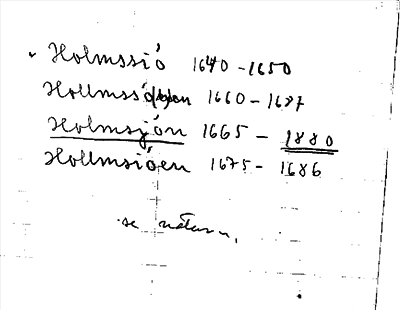 Holmssió 1640-1650
Hollmssió 1660-1687
Holmsjón 1665-1880
Hollmsiöen 1675-1686
se